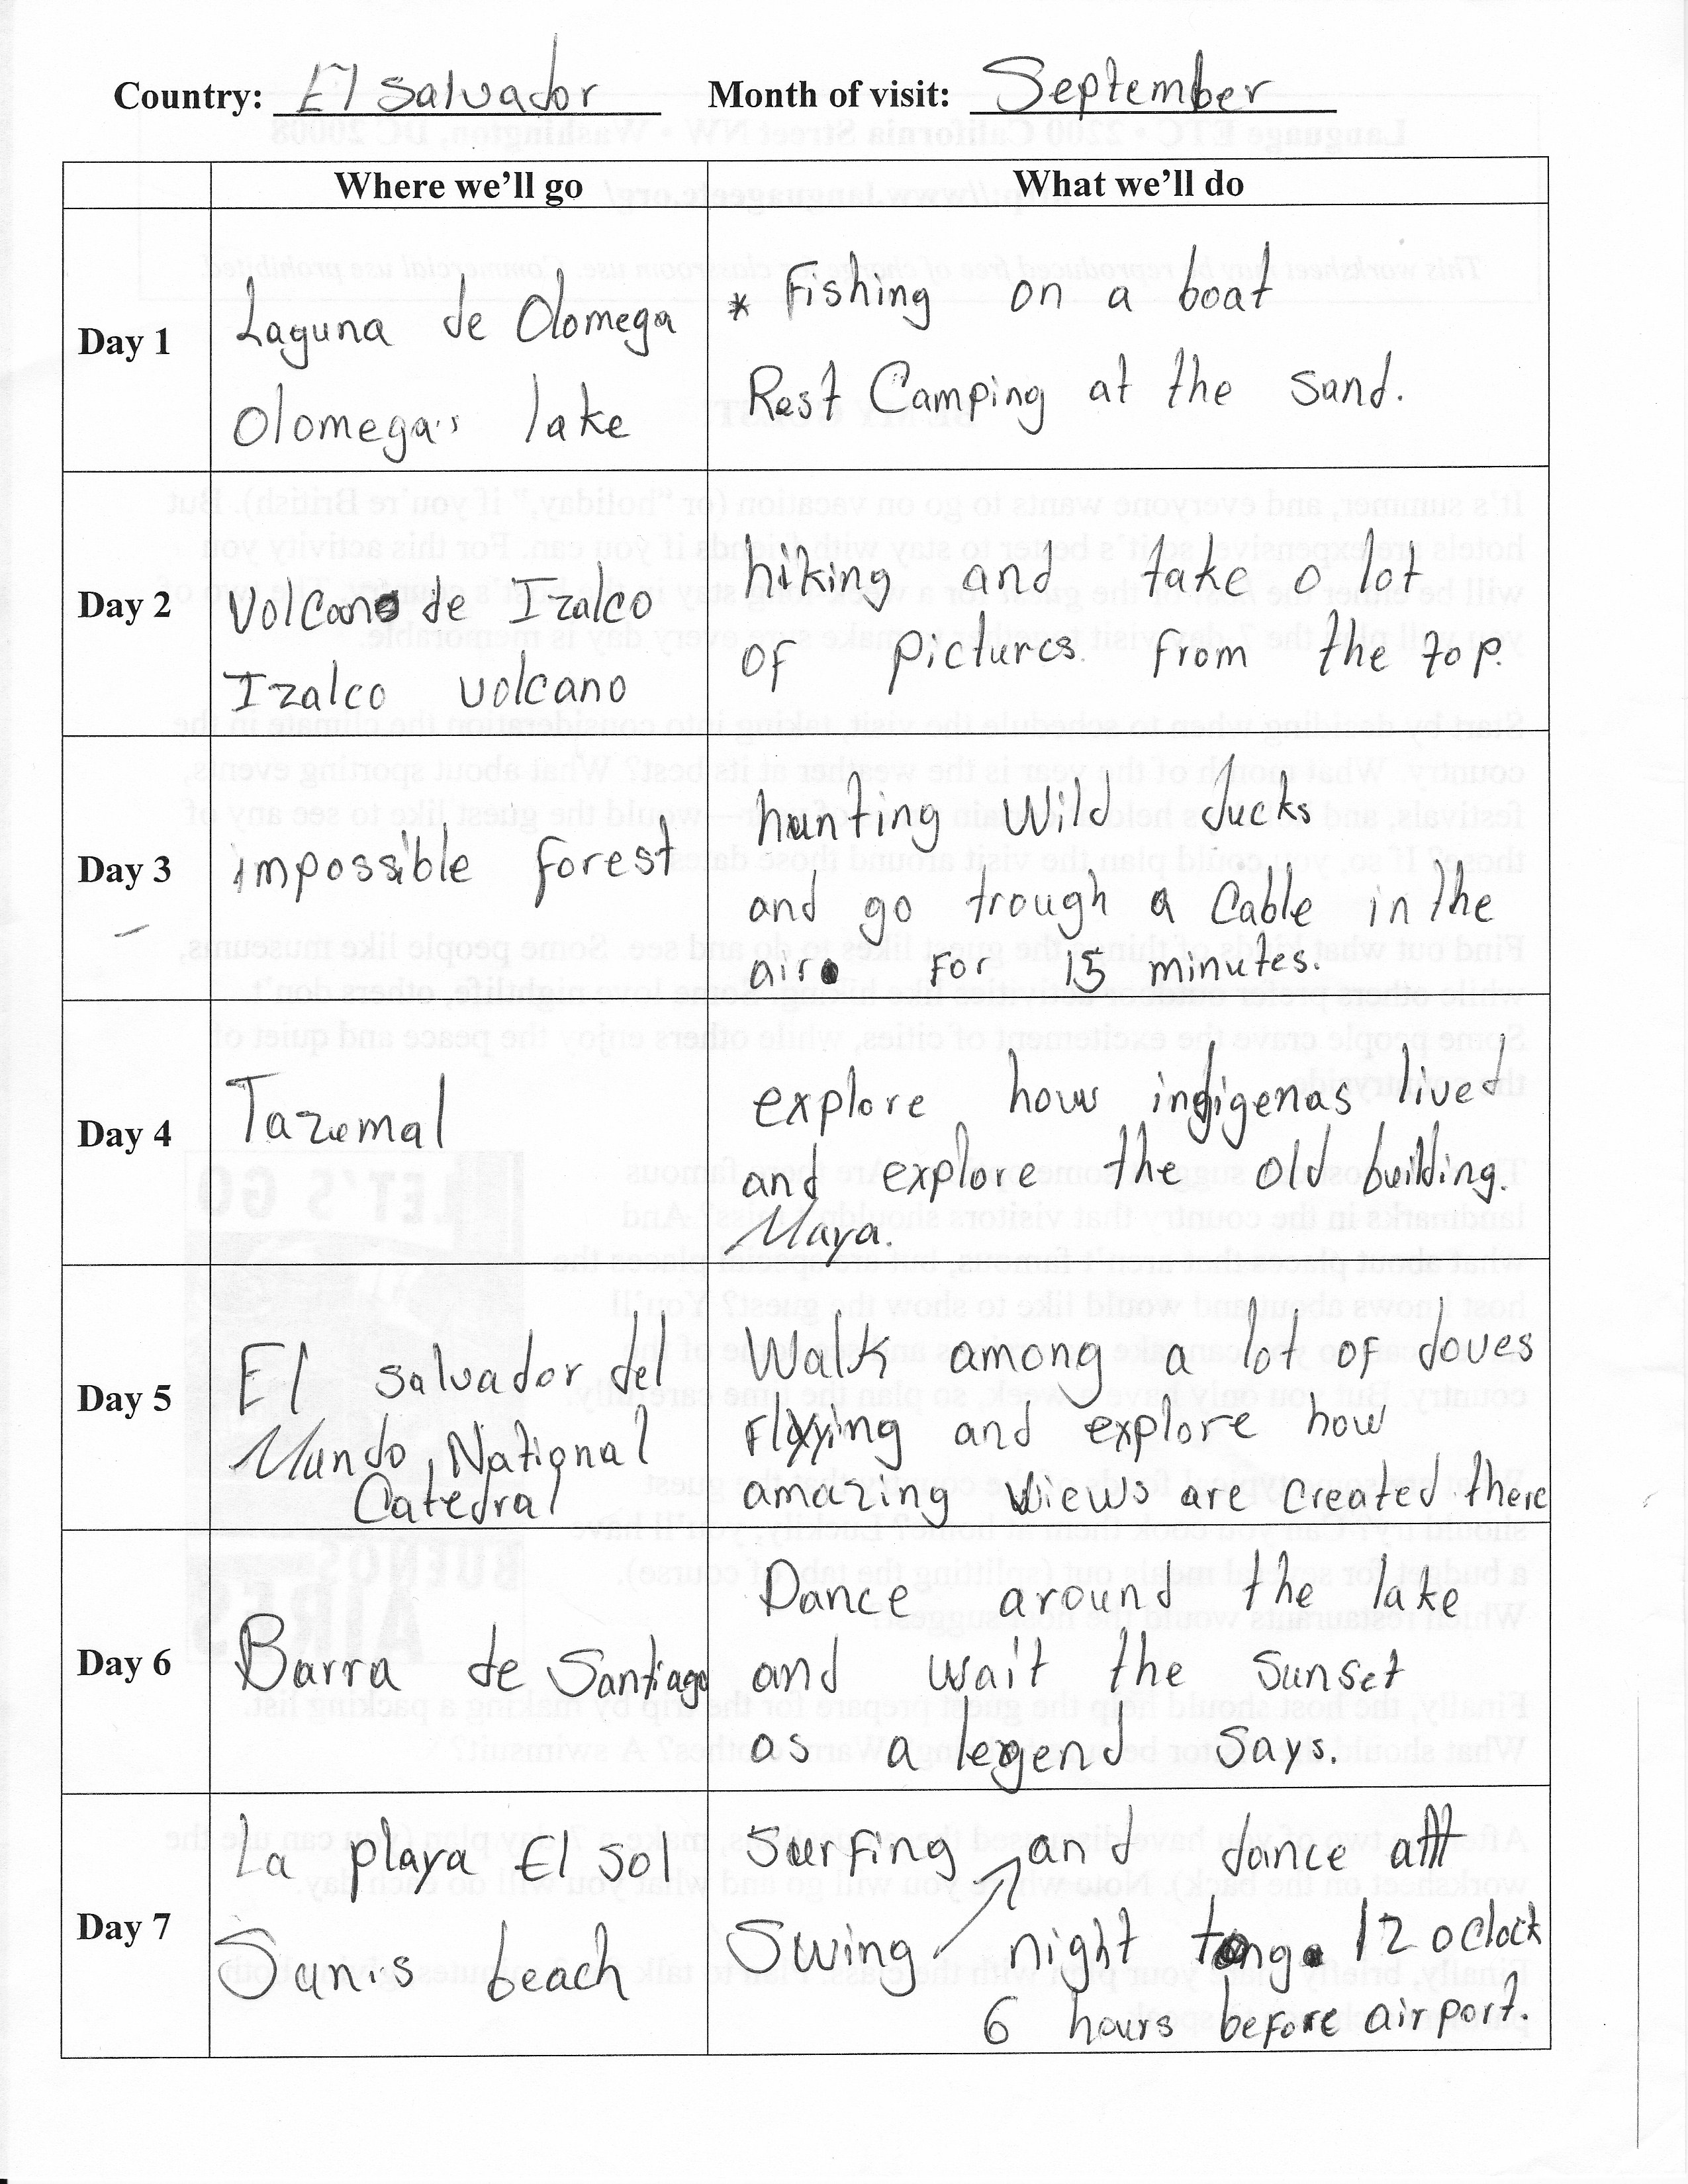 Country: El salvador Month of visit: September
Where we'll go What we'll do
Day 1
Laguna de Olomega
Olomega's lake
* Fishing on a boat
Rest Camping at the sand.
Day 2
Volcano de Izalco
Izalco volcano
hiking and take a lot
of pictures from the top.
Day 3
impossible forest
hunting Wild ducks
and go trough a Cable in the
air for 15 minutes.
Day 4
Tazumal
explore how indigenas lived
and explore the old building.
Maya.
Day 5
El salvador del
Mundo, National
Catedral
Walk among a lot of doves
flying and explore how
amazing views are created there
Day 6
Barra de Santiago
Dance around the lake
and wait the sunset
as a legend says.
Day 7
La playa El sol
Sun's beach
Surfing and dance att
Swing night 12 oclock
6 hours before airport.